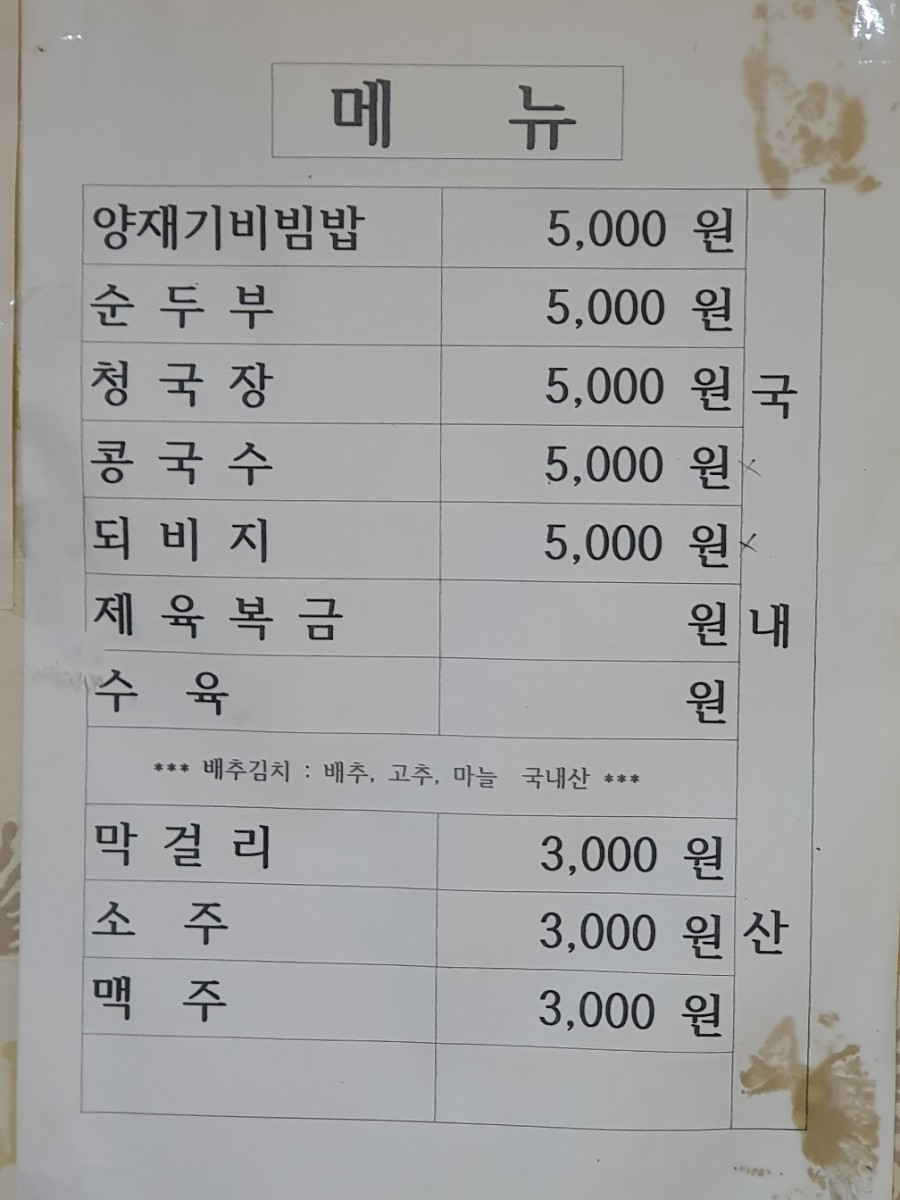 메 뉴
양재기비빔밥 5,000 원
순 두 부 5,000 원
청 국 장 5,000 원
콩 국 수 5,000 원
되 비 지 5,000 원
제 육 복 금 원
수 육 원
*** 배추김치 : 배추, 고추, 마늘 국내산 ***
막 걸 리 3,000 원
소 주 3,000 원
맥 주 3,000 원
국
내
산